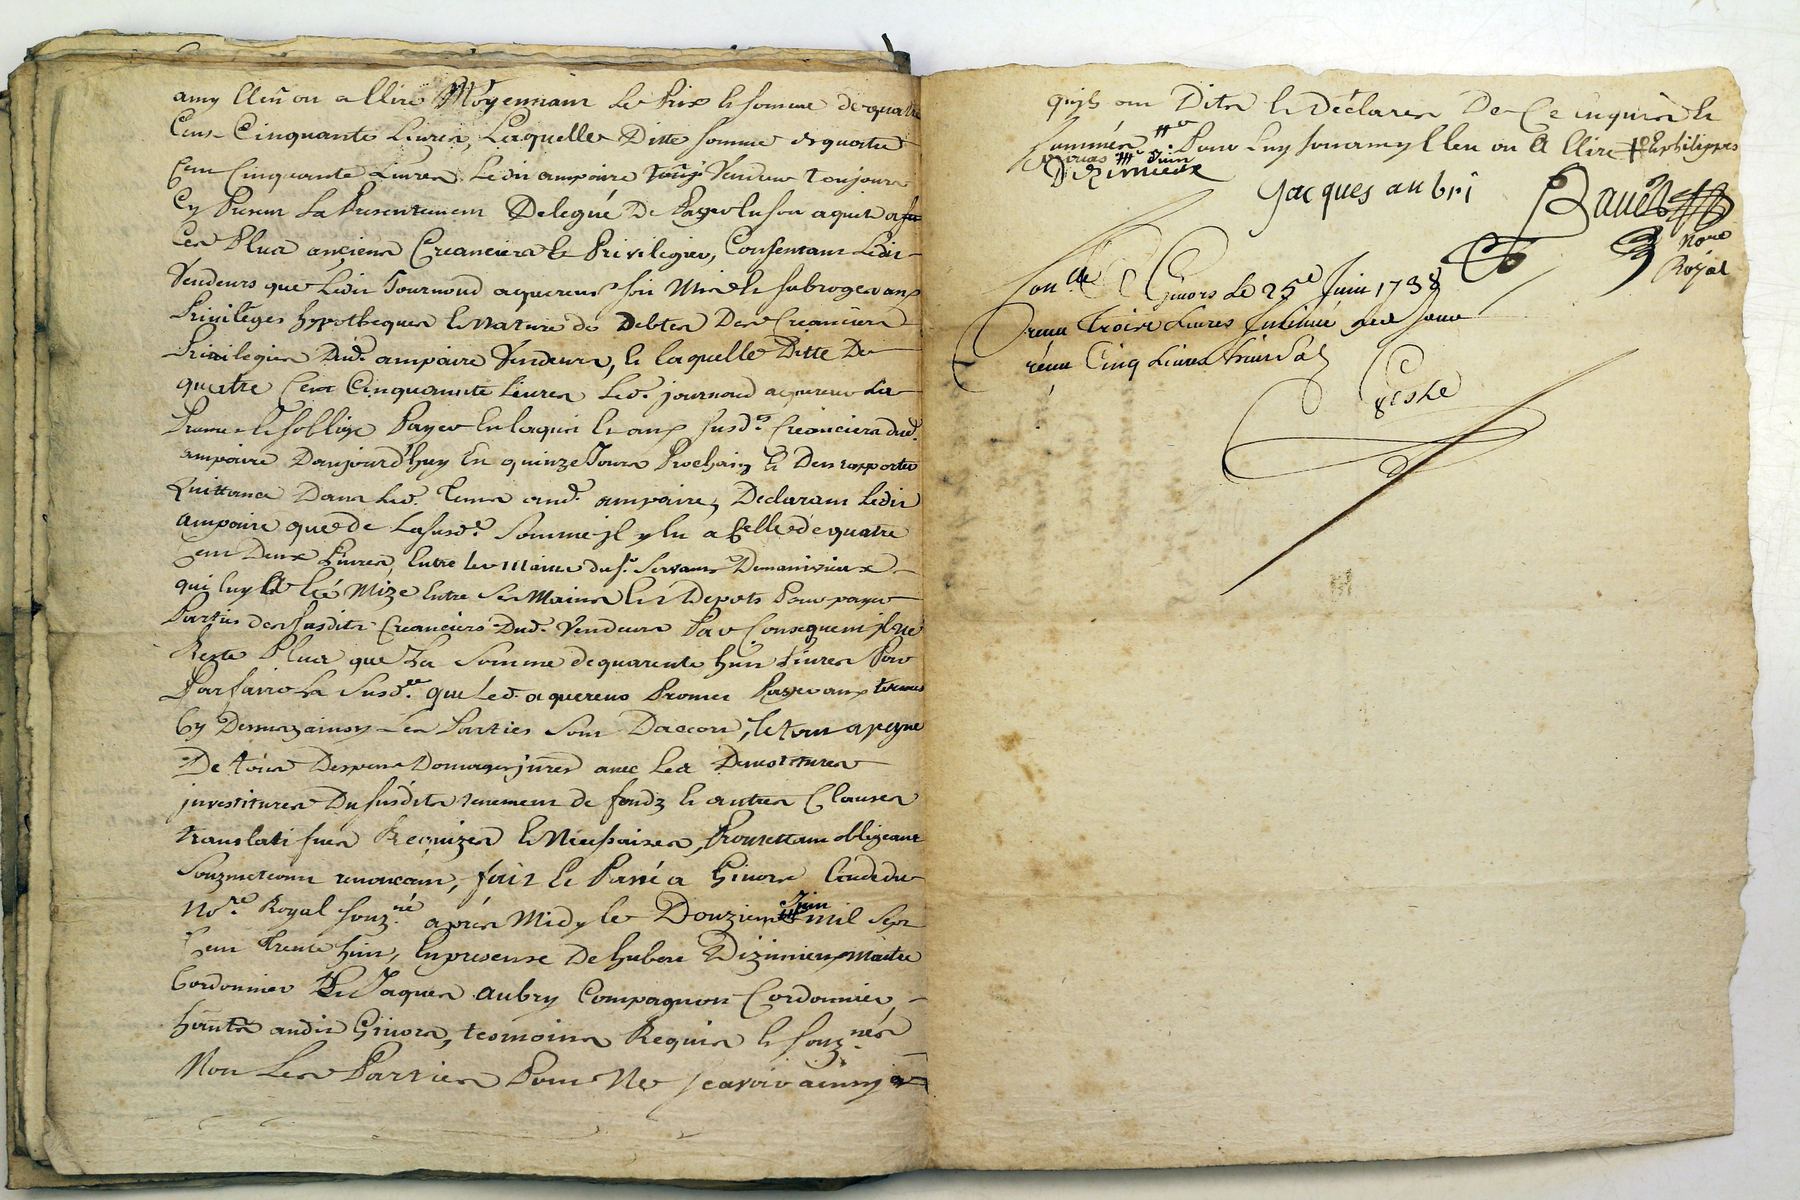 amy lleu ou a llire Moyennant le Prix & somme de quatre
Cent Cinquante Livres, Laquelle Ditte somme de quatre
Cent Cinquante Livres Ledit ampaire Vendeur toujours
Cy Present La Presentement Delegué De Payer luson aquit a
Ces Plus anciens Creanciers & Privilegiez, Consentant Ledit
Vendeurs que Ledit Journoud aquereur soit Mis & subrogé aux
Privileges hypotheques & Nature de Debtes Des Creanciers
Privilegies Dud. ampaire Vendeurs, & laquelle Ditte De
quattre Cent Cinquante Livres Led. journoud aquereur
Promet & soblige Payer En laquit & aux susd.s Creanciers dud.
ampaire Daujourd'huy En quinze Jours Prochain & Den rapporter
Quittance Dans Led. Tems aud. ampaire, Declarant Ledit
ampaire que de La susd.e Somme jl y En a Celle de quatre
Cent Deux Livres Entre les mains du s.r Servant Demanivieux
qui luy a Eté Mize Entre ses Mains En Depots Pour payer
Parties des susdits Creanciers Dud. Vendeurs Par Consequent jl Ne
Reste Plus que La Somme de quarente huit Livres Pour
Parfaire La Susd.e que Led. aquereur Promet Payer aux termes
Cy Dessus ainsy Les Parties Sont Daccort, & tout a peyne
De tous Despens Domages jnrés avec Les Devestitures
jnvestitures Du susdits tenement de fondz & autres Clauses
translatifues Requizes & Nécessaires, Promettant obligeant
Souzmettant renonçant, fait & Passé a Givors Etude du
No.re Royal souz.né après Midy le Douzieme Juin mil sept
Cent Trente huit, En presence De hubert Dizimieux Maitre
Cordonnier & Jaques Aubry Compagnon Cordonnier
habts audit Givors, tesmoins Requis & souz.nés
Non Les Parties Pour Ne sçavoir ainsy
quils ont Dits & Déclarer De Ce Enquis &
Sommés Pour Luy sont amy lleu ou a llire
Juin
Dizimieux
Jacques aubri
No.re
Royal
Con.llé a Givors Le 25e Juin 1738
receu Trois Livres
receu Cinq Livres